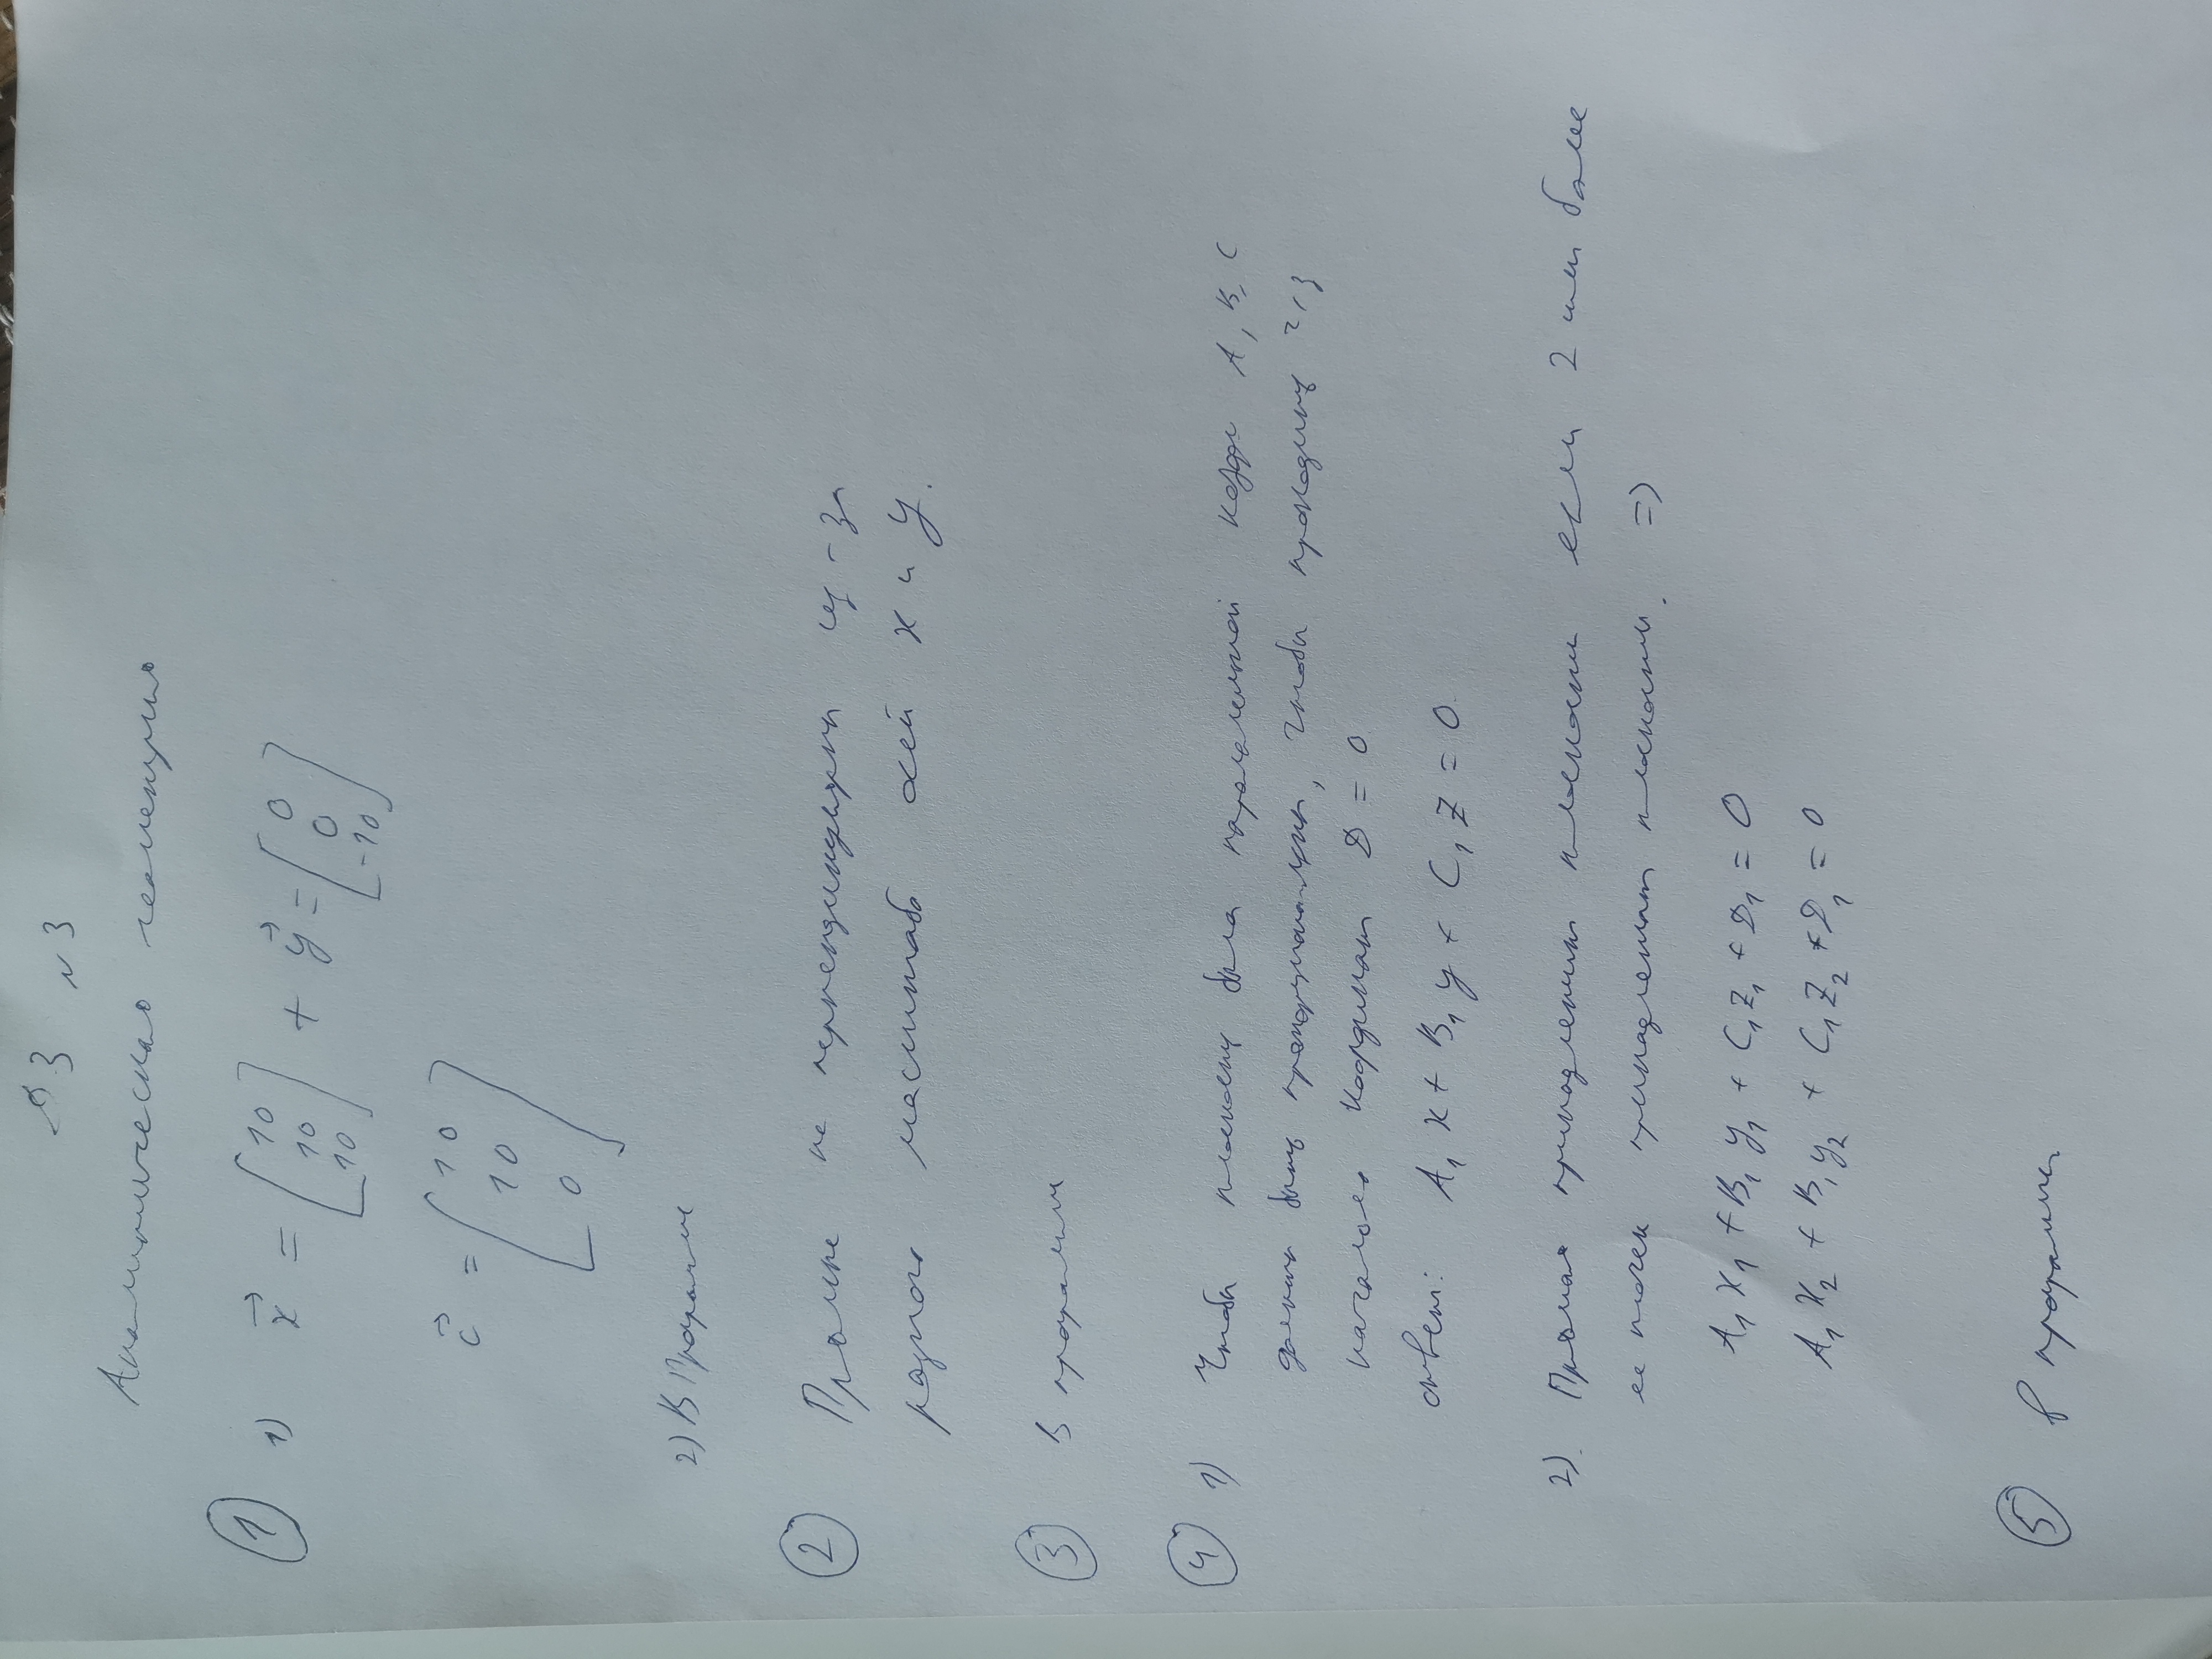 ДЗ №3
Аналитическая геометрия
1 1) x⃗ = [10 10 10] + y⃗ = [0 0 -10]
c⃗ = [10 10 0]
2) В Программе
2 Прямые не перпендикулярны из-за
разного масштаба осей x и y.
3 В программе
4 1) Чтобы плоскость была параллельной коэфф A, B, C
должны быть пропорциональны, чтобы проходить ч/з
начало координат D = 0
ответ: A₁x + B₁y + C₁z = 0.
2). Прямая принадлежит плоскости если 2 или более
ее точек принадлежат плоскости. =>
A₁x₁ + B₁y₁ + C₁z₁ + D₁ = 0
A₁x₂ + B₁y₂ + C₁z₂ + D₁ = 0
5 в программе